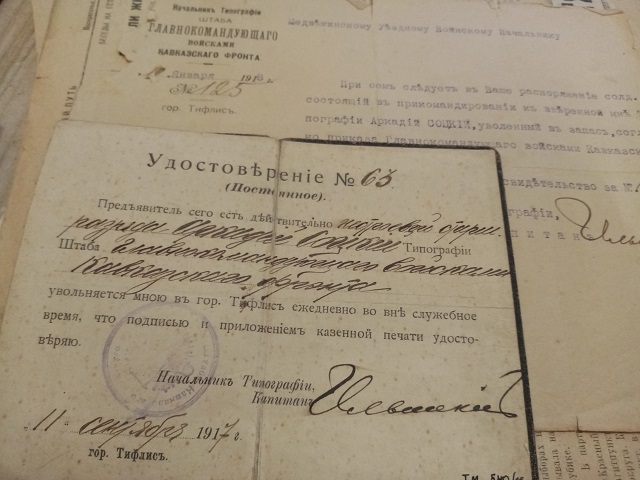 Начальникъ Типографіи
ШТАБА
ГЛАВНОКОМАНДУЮЩАГО
ВОЙСКАМИ
КАВКАЗСКАГО ФРОНТА.
Января 1918 г.
№ 125
гор. Тифлисъ.
Медвѣжинскому Уѣздному Воинскому Начальнику
При семъ слѣдуетъ въ Ваше распоряженіе солд.
состоящій въ прикомандированіи къ ввѣренной мнѣ Ти
пографіи Аркадій СОЦКІЙ, уволенный въ запасъ, согл
но приказа Главнокомандующаго войсками Кавказск
свидѣтельство за №
графіи,
питанъ
Удостовѣреніе № 63
(Постоянное).
Предъявитель сего есть дѣйствительно нестроевой
Аркадій Соцкій Типографіи
Штаба Главнокомандующаго войсками
Кавказскаго фронта
увольняется мною въ гор. Тифлисъ ежедневно во внѣ служебное
время, что подписью и приложеніемъ казенной печати удосто-
вѣряю.
Начальникъ Типографіи,
Капитанъ
11 сентября 1917 г.
гор. Тифлисъ.